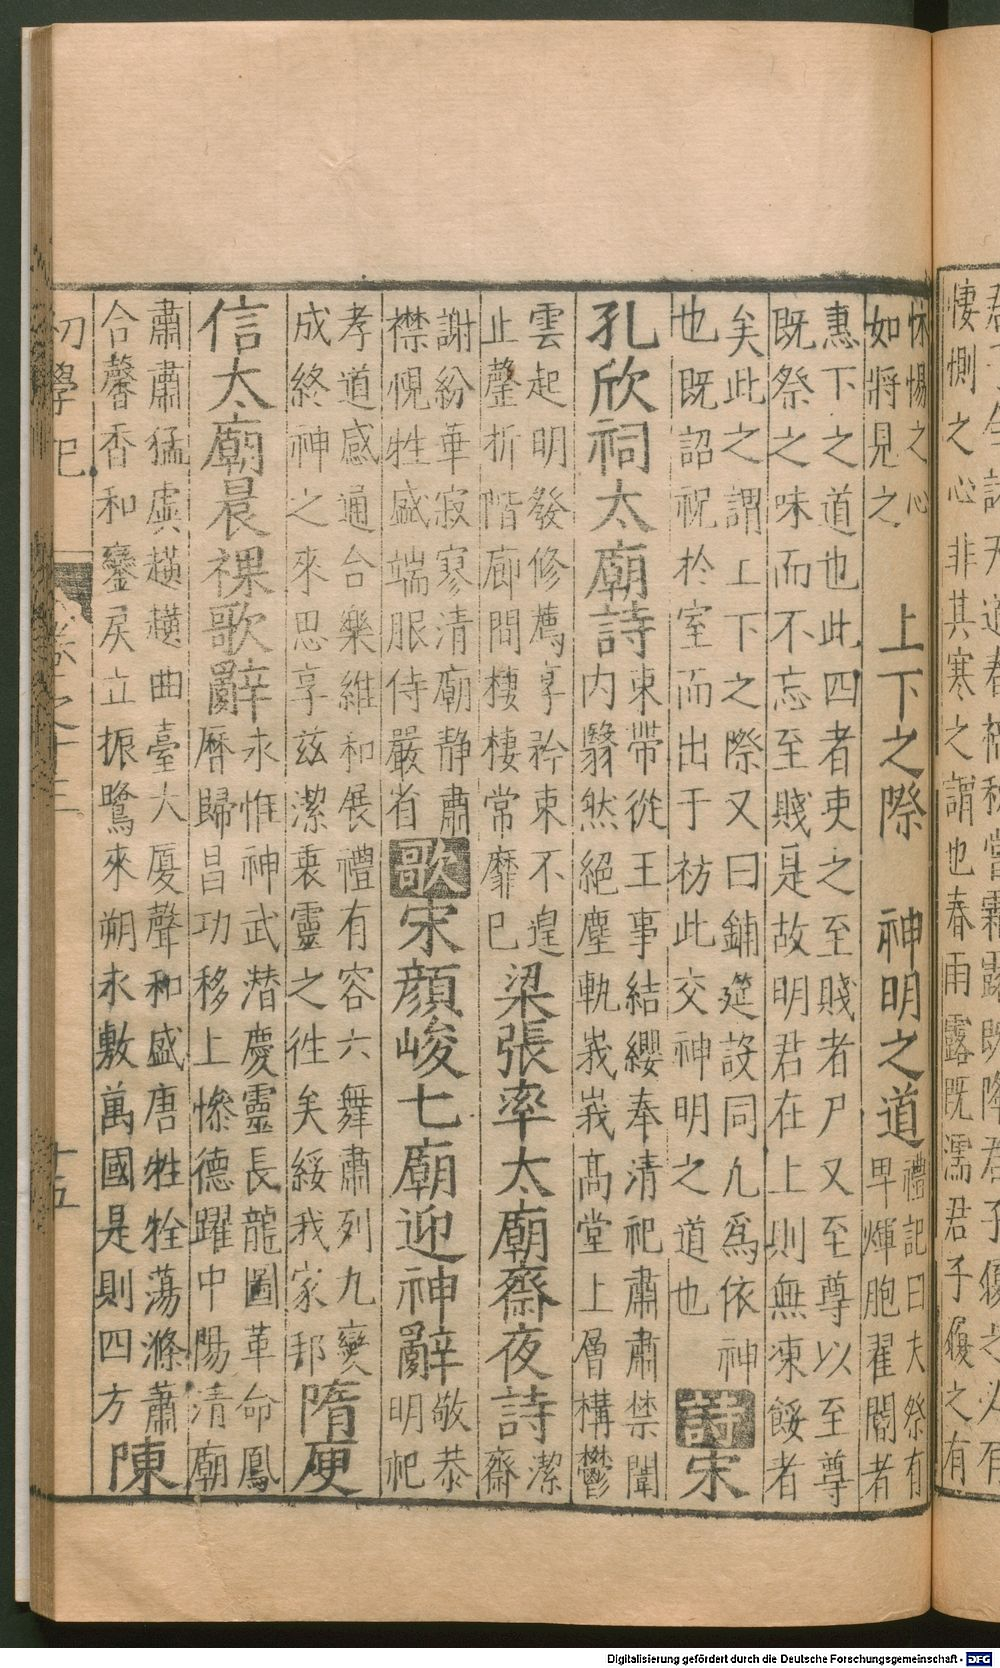 悽惻之心非其寒之謂也春雨露既濡君子履之有
怵惕之心
如將見之
上下之際　神明之道
禮記曰夫祭有
畀煇胞翟閽者
惠下之道也此四者吏之至賤者尸又至尊以至尊
既祭之味而不忘至賤是故明君在上則無凍餒者
矣此之謂上下之際又曰鋪筵設同几爲依神
也既詔祝於室而出于祊此交神明之道也
詩宋
孔欣祠太廟詩
束帶從王事結纓奉清祀肅肅禁闈
內翳然絕塵軌峩峩高堂上層構鬱
雲起明發修薦享衿束不遑
止磬折階廊間棲棲常靡已
梁張率太廟齋夜詩
潔
齋
謝紛華寂寥清廟静肅
襟恍牲盛端服侍嚴省
歌宋顏峻七廟迎神辭
敬恭
明祀
孝道感通合樂維和展禮有容六舞肅列九變
成終神之來思享茲潔衷靈之徃矣綏我家邦
隋庾
信太廟晨祼歌辭
永惟神武潜慶靈長龍圖革命鳳
曆歸昌功移上慘德躍中陽清廟
肅肅猛虡趪趪曲臺大厦聲和盛唐牲牷蕩滌蕭
合馨香和鑾戾立振鷺來朔永敷萬國是則四方
陳
初學記
卷之十三
十五
Digitalisierung gefördert durch die Deutsche Forschungsgemeinschaft - DFG